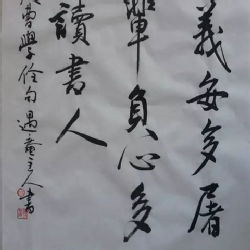 義每多屠
輩負心多
讀書人
曹學佺句遇童主人書